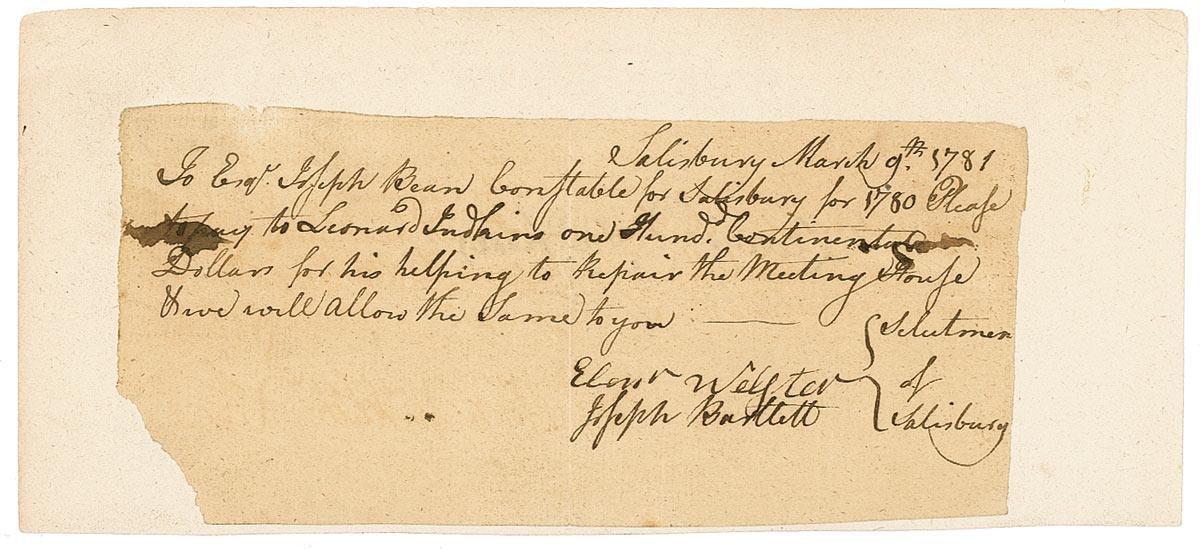 Salisbury March 9th. 1781
To Esqr. Joseph Bean Constable for Salisbury for 1780 Please
to pay to Leonard Judkins one Hund.d Continental
Dollars for his helping to Repair the Meeting House
& we will allow the Same to you ———
Selectmen
Ebenr Webster
of
Joseph Bartlett
Salisbury